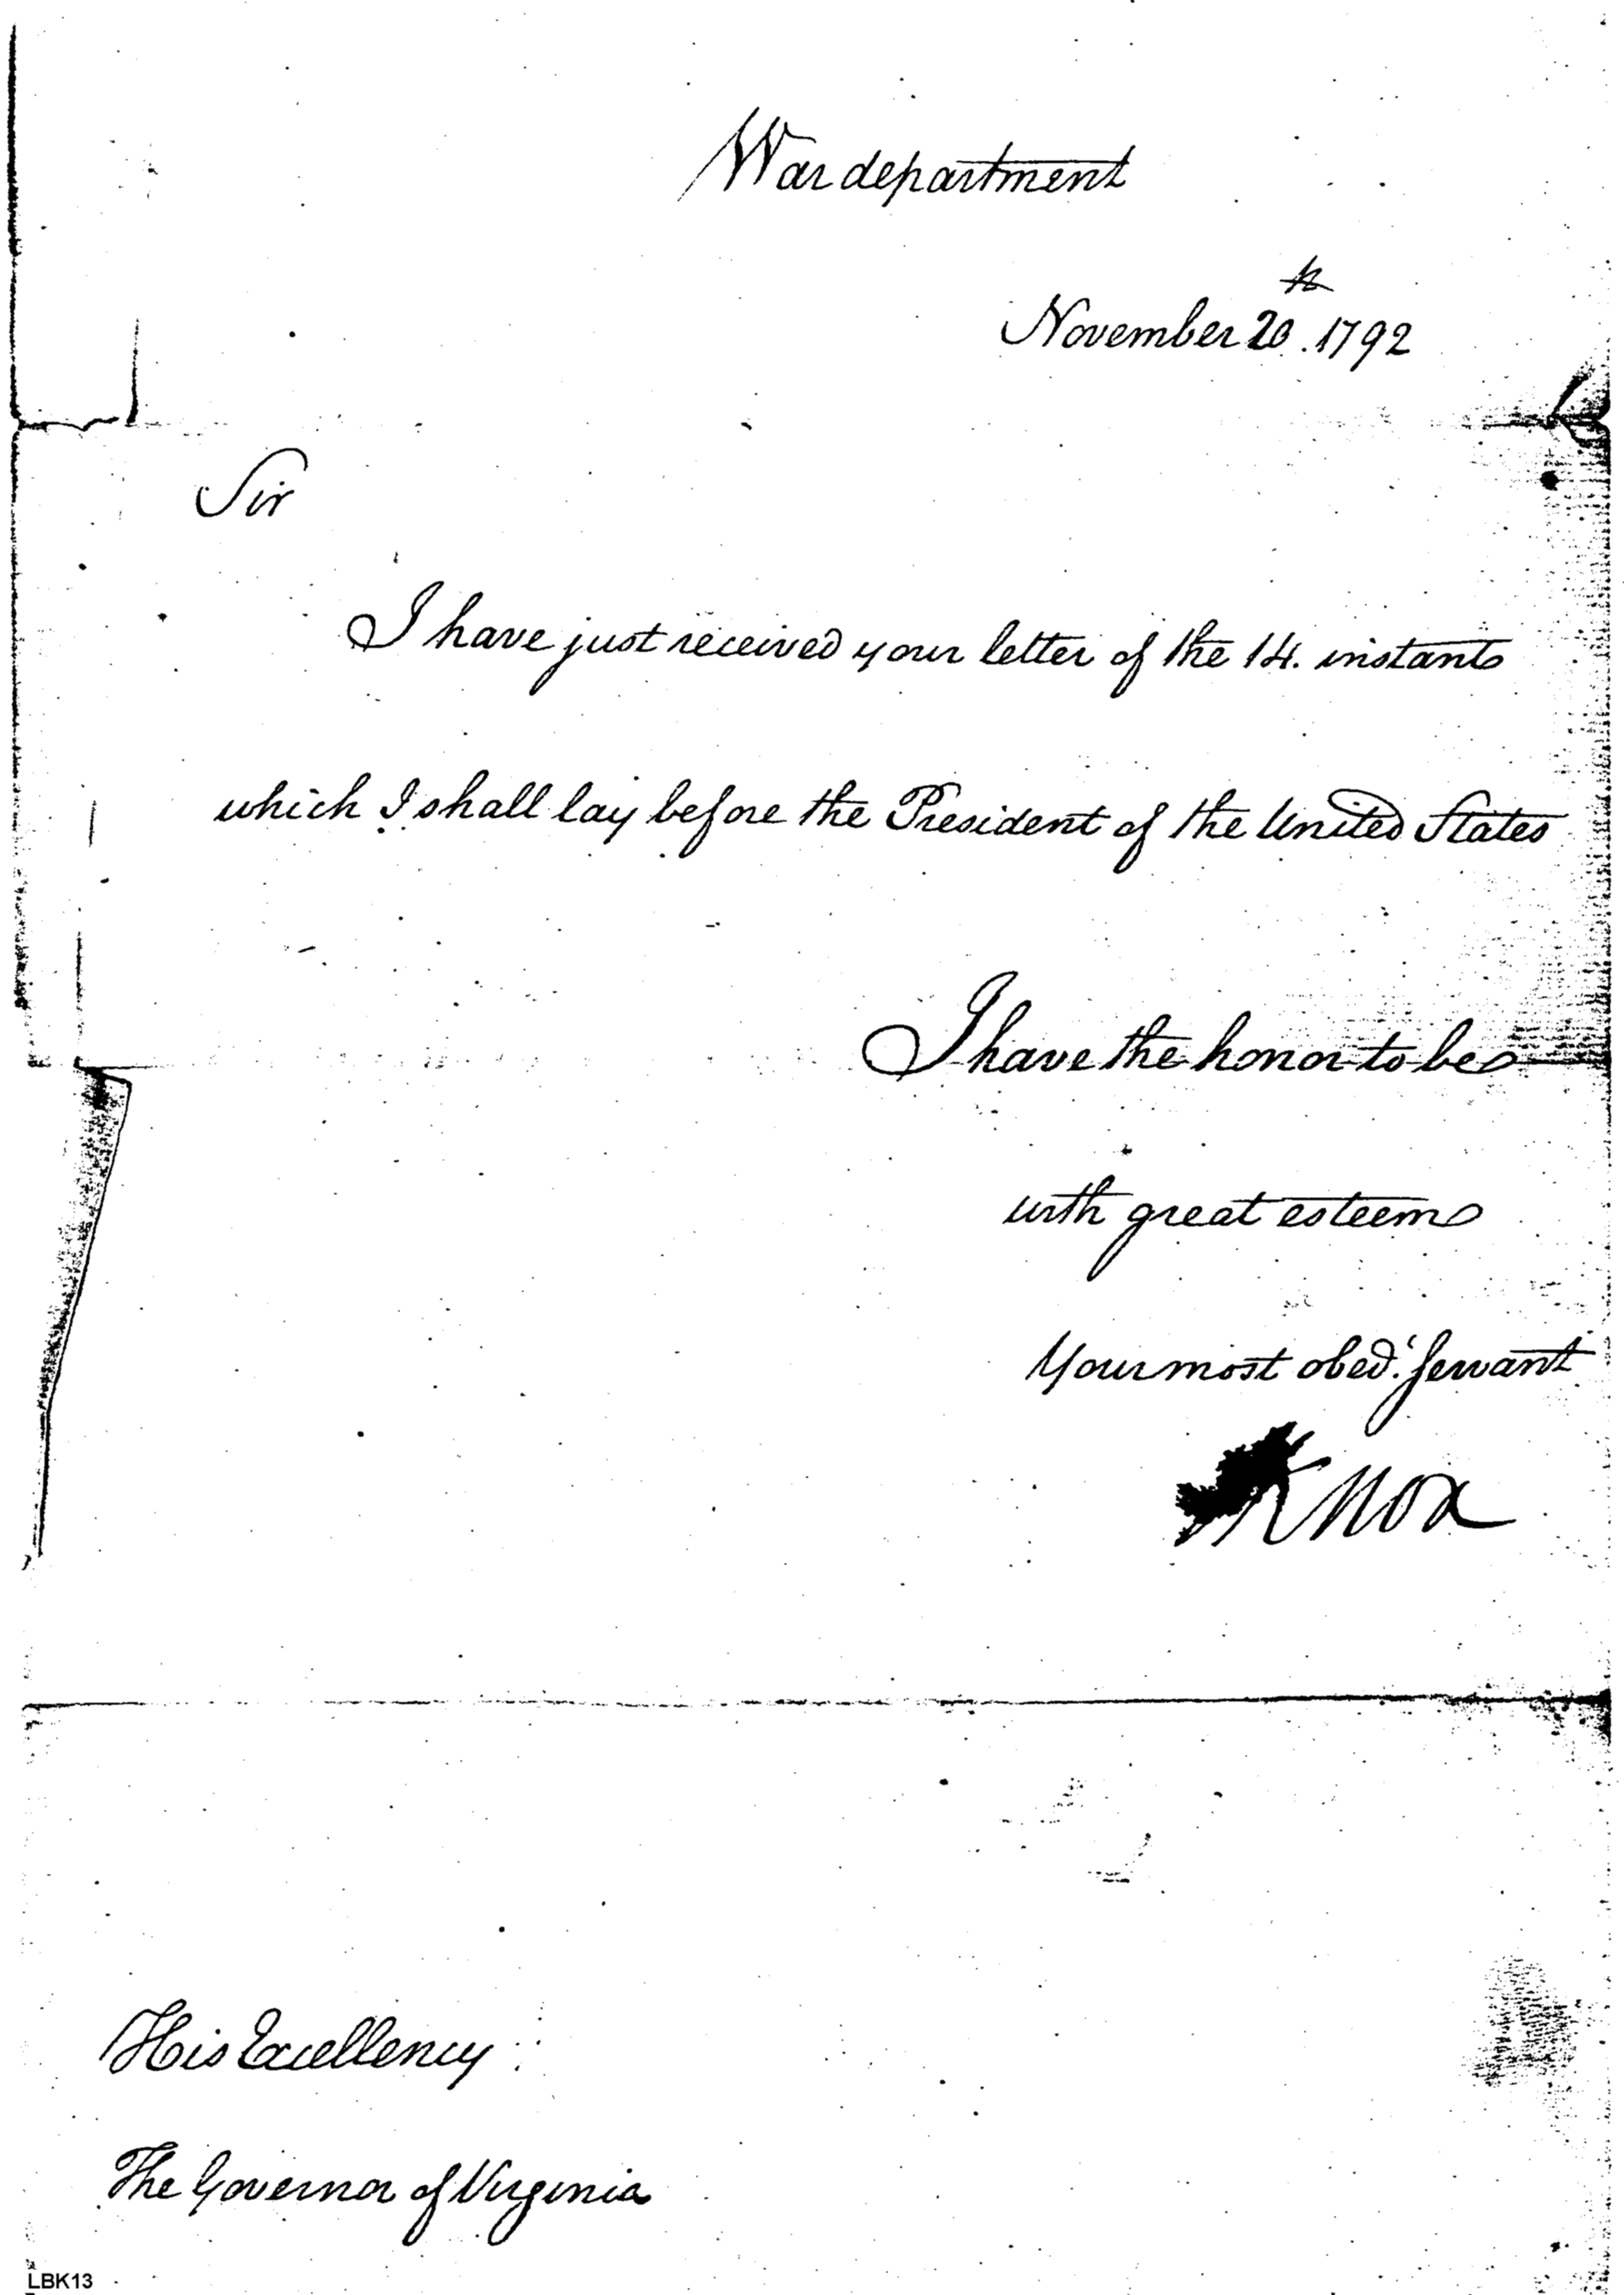 War department
November 20th. 1792
Sir
I have just received your letter of the 14. instant
which I shall lay before the President of the United States
I have the honor to be
with great esteem
Your most obed.t servant
Knox
His Excellency
The Governor of Virginia
LBK13